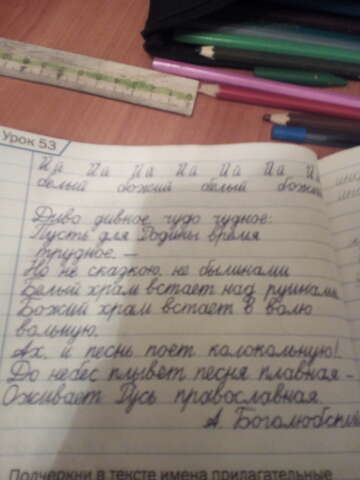 Урок 53
Йй Йй Йй Йй Йй Йй Йй
белый божий белый божий
Диво дивное, чудо чудное:
Пусть для Родины время
трудное, –
Но не сказкою, не былинами
Белый храм встает над руинами
Божий храм встает в волю
вольную.
Ах, и песнь поёт колокольную!
До небес плывёт песня плавная –
Оживает Русь православная.
А. Боголюбский
Подчеркни в тексте имена прилагательные